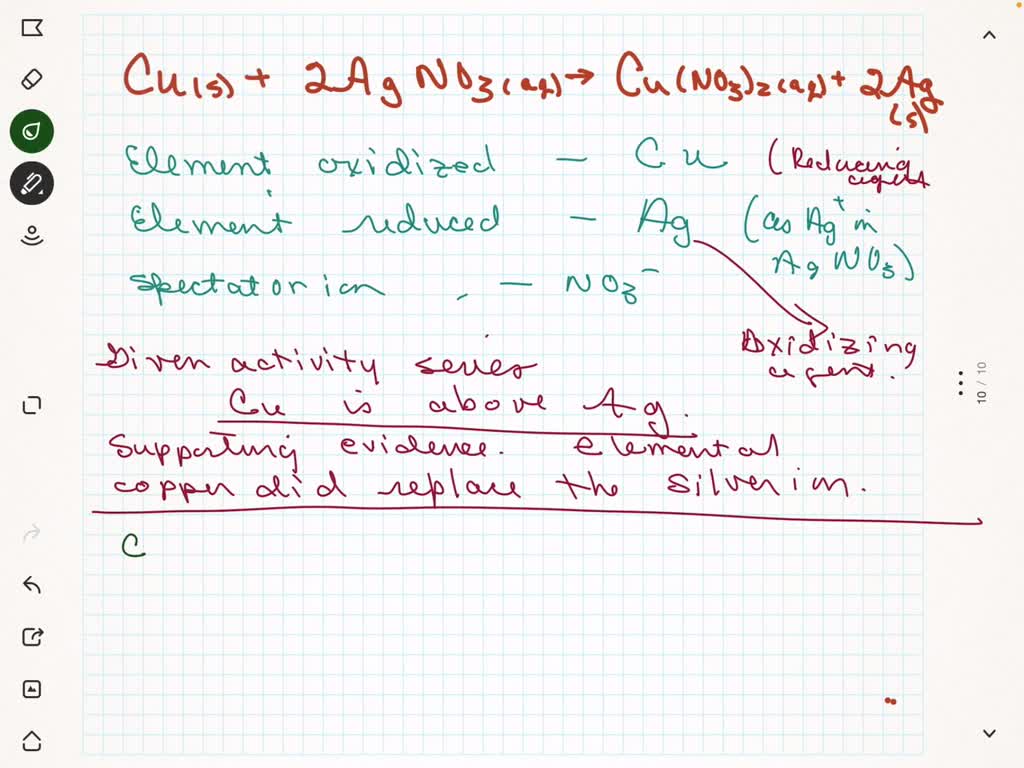 Cu(s) + 2AgNO3(aq) → Cu(NO3)2(aq) + 2Ag(s)
Element oxidized — Cu (Reducing agent
Element reduced — Ag (as Ag+ in AgNO3)
Spectator ion — NO3-
Oxidizing agent.
Given activity series
Cu is above Ag.
Supporting evidence. elemental
copper did replace the silver ion.
C
10 / 10